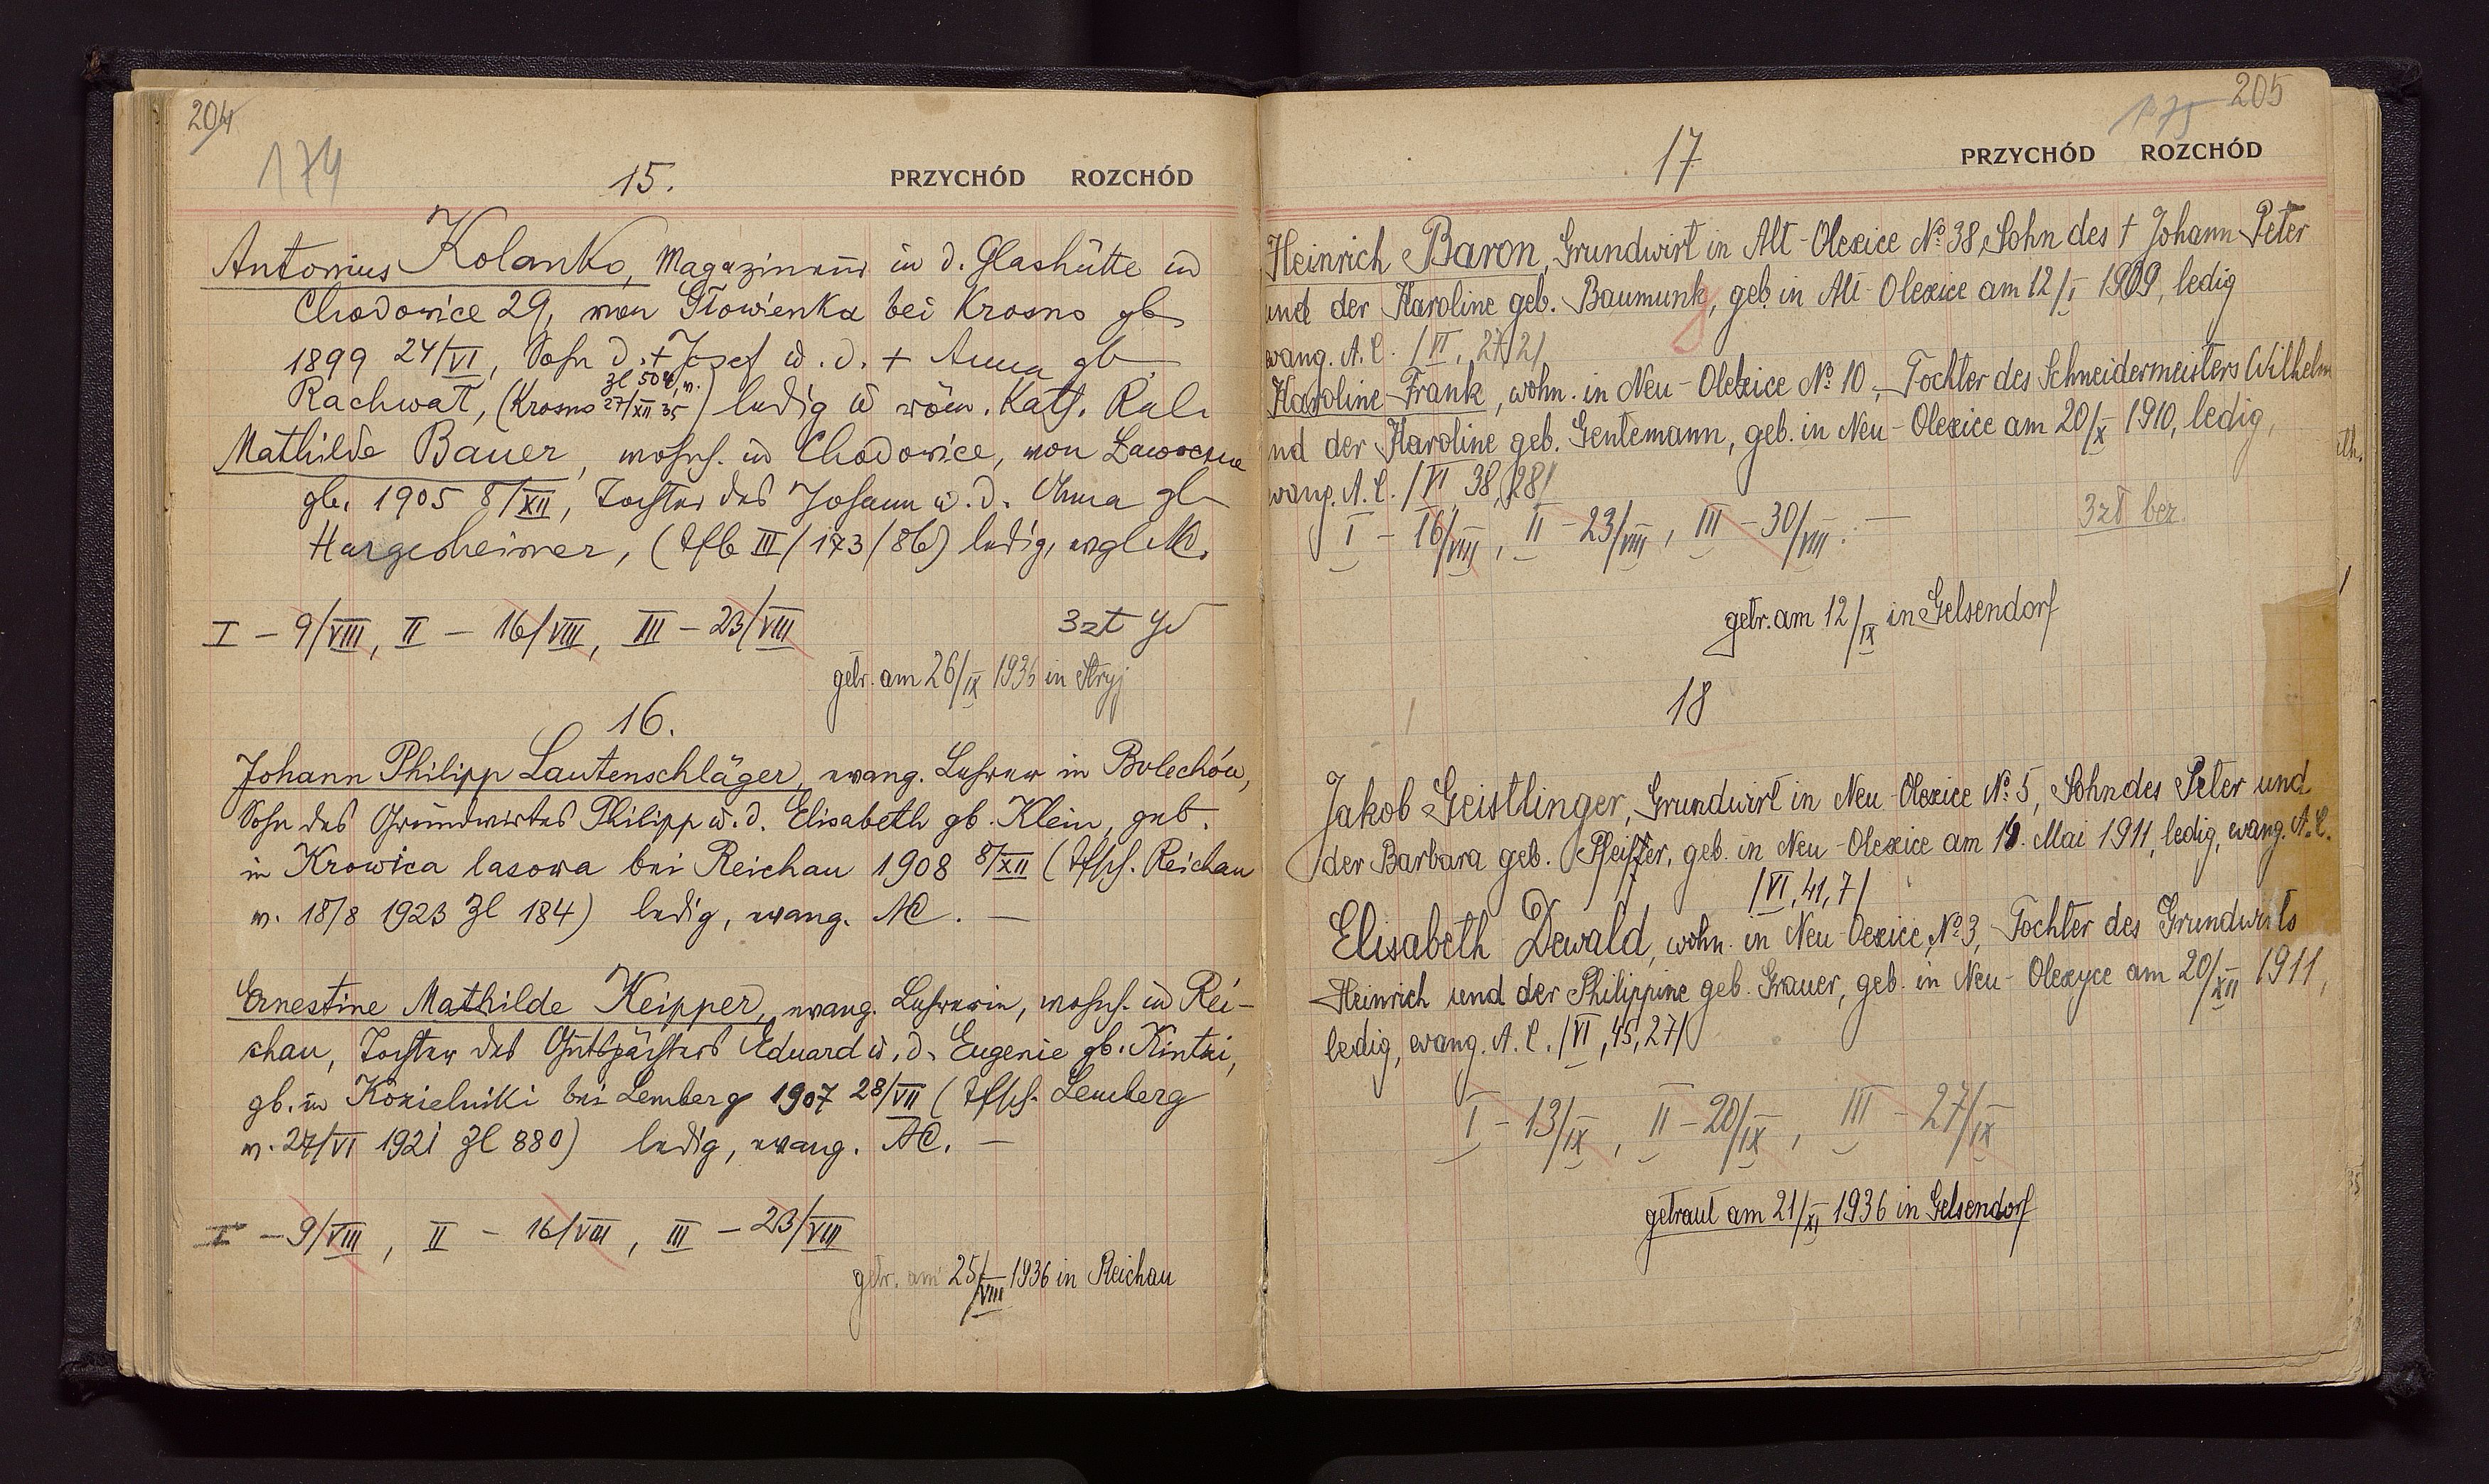 204
174
15.
PRZYCHÓD ROZCHÓD
Antonius Kolanko, Magazineur in d. Glashütte in
Chodowice 29, von Głowienka bei Krosno gb.
1899 24/VI, Sohn d. + Josef u. d. + Anna gb.
Zl 504 v.
Rachwał, (Krosno 27/XII 35) ledig u röm. Kath. Rel.
Mathilde Bauer, wohnh. in Chodowice, von
gb. 1905 8/XII, Tochter des Johann u. d. Anna gb
Hargesheimer, (Tfb III/173/86) ledig, evgl AC.
I – 9/VIII, II – 16/VIII, III – 23/VIII
3zł
getr. am 26/IX 1936 in Stryj
16.
Johann Philipp Lautenschläger, evang. Lehrer in Bolechów,
Sohn des Grundwirtes Philipp u. d. Elisabeth gb. Klein, geb.
in Krowica lasowa bei Reichau 1908 8/XII (Tfsch. Reichau
v. 18/8 1923 Zl 184) ledig, evang. AC. —
Ernestine Mathilde Keipper, evang. Lehrerin, wohnh. in Rei-
chau, Tochter des Gutspächters Eduard u. d. Eugenie gb. Kintzi,
gb. in Kozielniki bei Lemberg 1907 28/VII (Tfsch. Lemberg
v. 27/VI 1921 Zl 880) ledig, evang. AC. —
I – 9/VIII, II – 16/VIII, III – 23/VIII
getr. am 25/VIII 1936 in Reichau
205
175
17
PRZYCHÓD ROZCHÓD
Heinrich Baron, Grundwirt in Alt-Olexice No. 38, Sohn des + Johann Peter
und der Karoline geb. Baumunk, geb. in Alt-Olexice am 12/I 1909, ledig
evang. A. C. /VI, 27, 2/
Karoline Frank, wohn. in Neu-Olexice No. 10, Tochter des Schneidermeisters Wilhelm
und der Karoline geb. Gentemann, geb. in Neu-Olexice am 20/X 1910, ledig,
evang. A. C. /VI 38, 28/
3zł bez.
I – 16/VIII, II – 23/VIII, III – 30/VIII. —
getr. am 12/IX in Gelsendorf
18
Jakob Geistlinger, Grundwirt in Neu-Olexice No. 5, Sohn des Peter und
der Barbara geb. Pfeiffer, geb. in Neu-Olexice am 16. Mai 1911, ledig, evang. A. C.
/VI, 41, 7/
Elisabeth Dewald, wohn. in Neu-Oexice, No. 3, Tochter des Grundwirts
Heinrich und der Philippine geb. Grauer, geb. in Neu-Olexyce am 20/XII 1911,
ledig, evang. A. C. /VI, 45, 27/
I – 13/IX, II – 20/IX, III – 27/IX
getraut am 21/XI 1936 in Gelsendorf